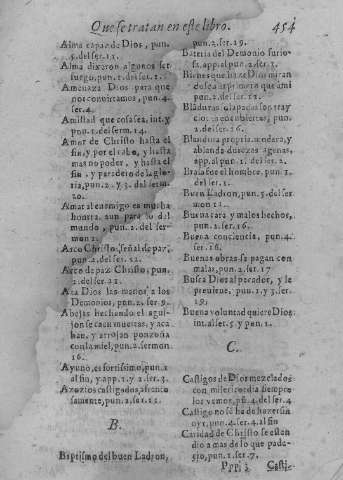 Que se tratan en este libro. 454
Alma capaz de Dios, pun.
5. del ser. 11.
Alma dixeron algunos ser
fuego, pun. 1. del ser. 1.
Amenaza Dios para que
nos convirtamos, pun. 4.
ser. 4.
Amistad que cosa sea, int. y
pun. 1. del serm. 14.
Amor de Christo hasta el
fin, y por el cabo, y hasta
mas no poder, y hasta el
fin, y paradero de la glo-
ria, pun. 2. y 3. del serm.
10.
Amar al enemigo es mucha
honra, aun para lo del
mundo, pun. 2. del ser-
mon
Arco Christo, señal de paz,
pun. 2. del ser. 22.
Arco de paz Christo, pun.
2. del ser. 22.
Ata Dios las manos a los
Demonios, pun. 2. ser. 9.
Abejas hechando el agui-
jon se caen muertas, y aca
ban, y arrojan ponzoña
con la miel, pun. 2. sermon
16.
Ayuno, es fortissimo, pun. 1
al fin, y app. 1. y 2. ser. 3.
castigados, afrento
samente, pun. 2. ser. 12.
B.
Baptismo del buen Ladron,
pun. 2. ser. 19.
Bateria del Demonio furio-
sa, app. al pun. 2. ser. 1.
Bienes que haze Dios miran
pun 2. del ser. 12.
Blanduras
2. del ser. 16.
Blandura propria, modera, y
ablanda durezas agenas,
app. al pun. 1. del ser. 2.
por el hombre, pun. 1.
del ser. 1.
Buen Ladron, pun. 5. del ser
mon
Buena cara y malos hechos,
pun. 2. ser. 16.
Buena conciencia, pun. 4.
ser. 16.
Buenas obras se pagan con
malas, pun. 2. ser. 17
Busca Dios al pecador, y le
previene, pun. 1. y 3. ser.
19.
Buena voluntad quiere Dios,
int. al ser. 5. y pun. 1.
C.
Castigos de Dios mezclados
con misericordia siempre
los vemos, pun. 4. del ser. 4
Castigo no se ha de hazer sin
oyr, pun. 4. ser. 4. al fin
Caridad de Christo se esten
dio a mas de lo que pade-
zio, pun. 1. ser. 7.
Ppp 3 Casti-